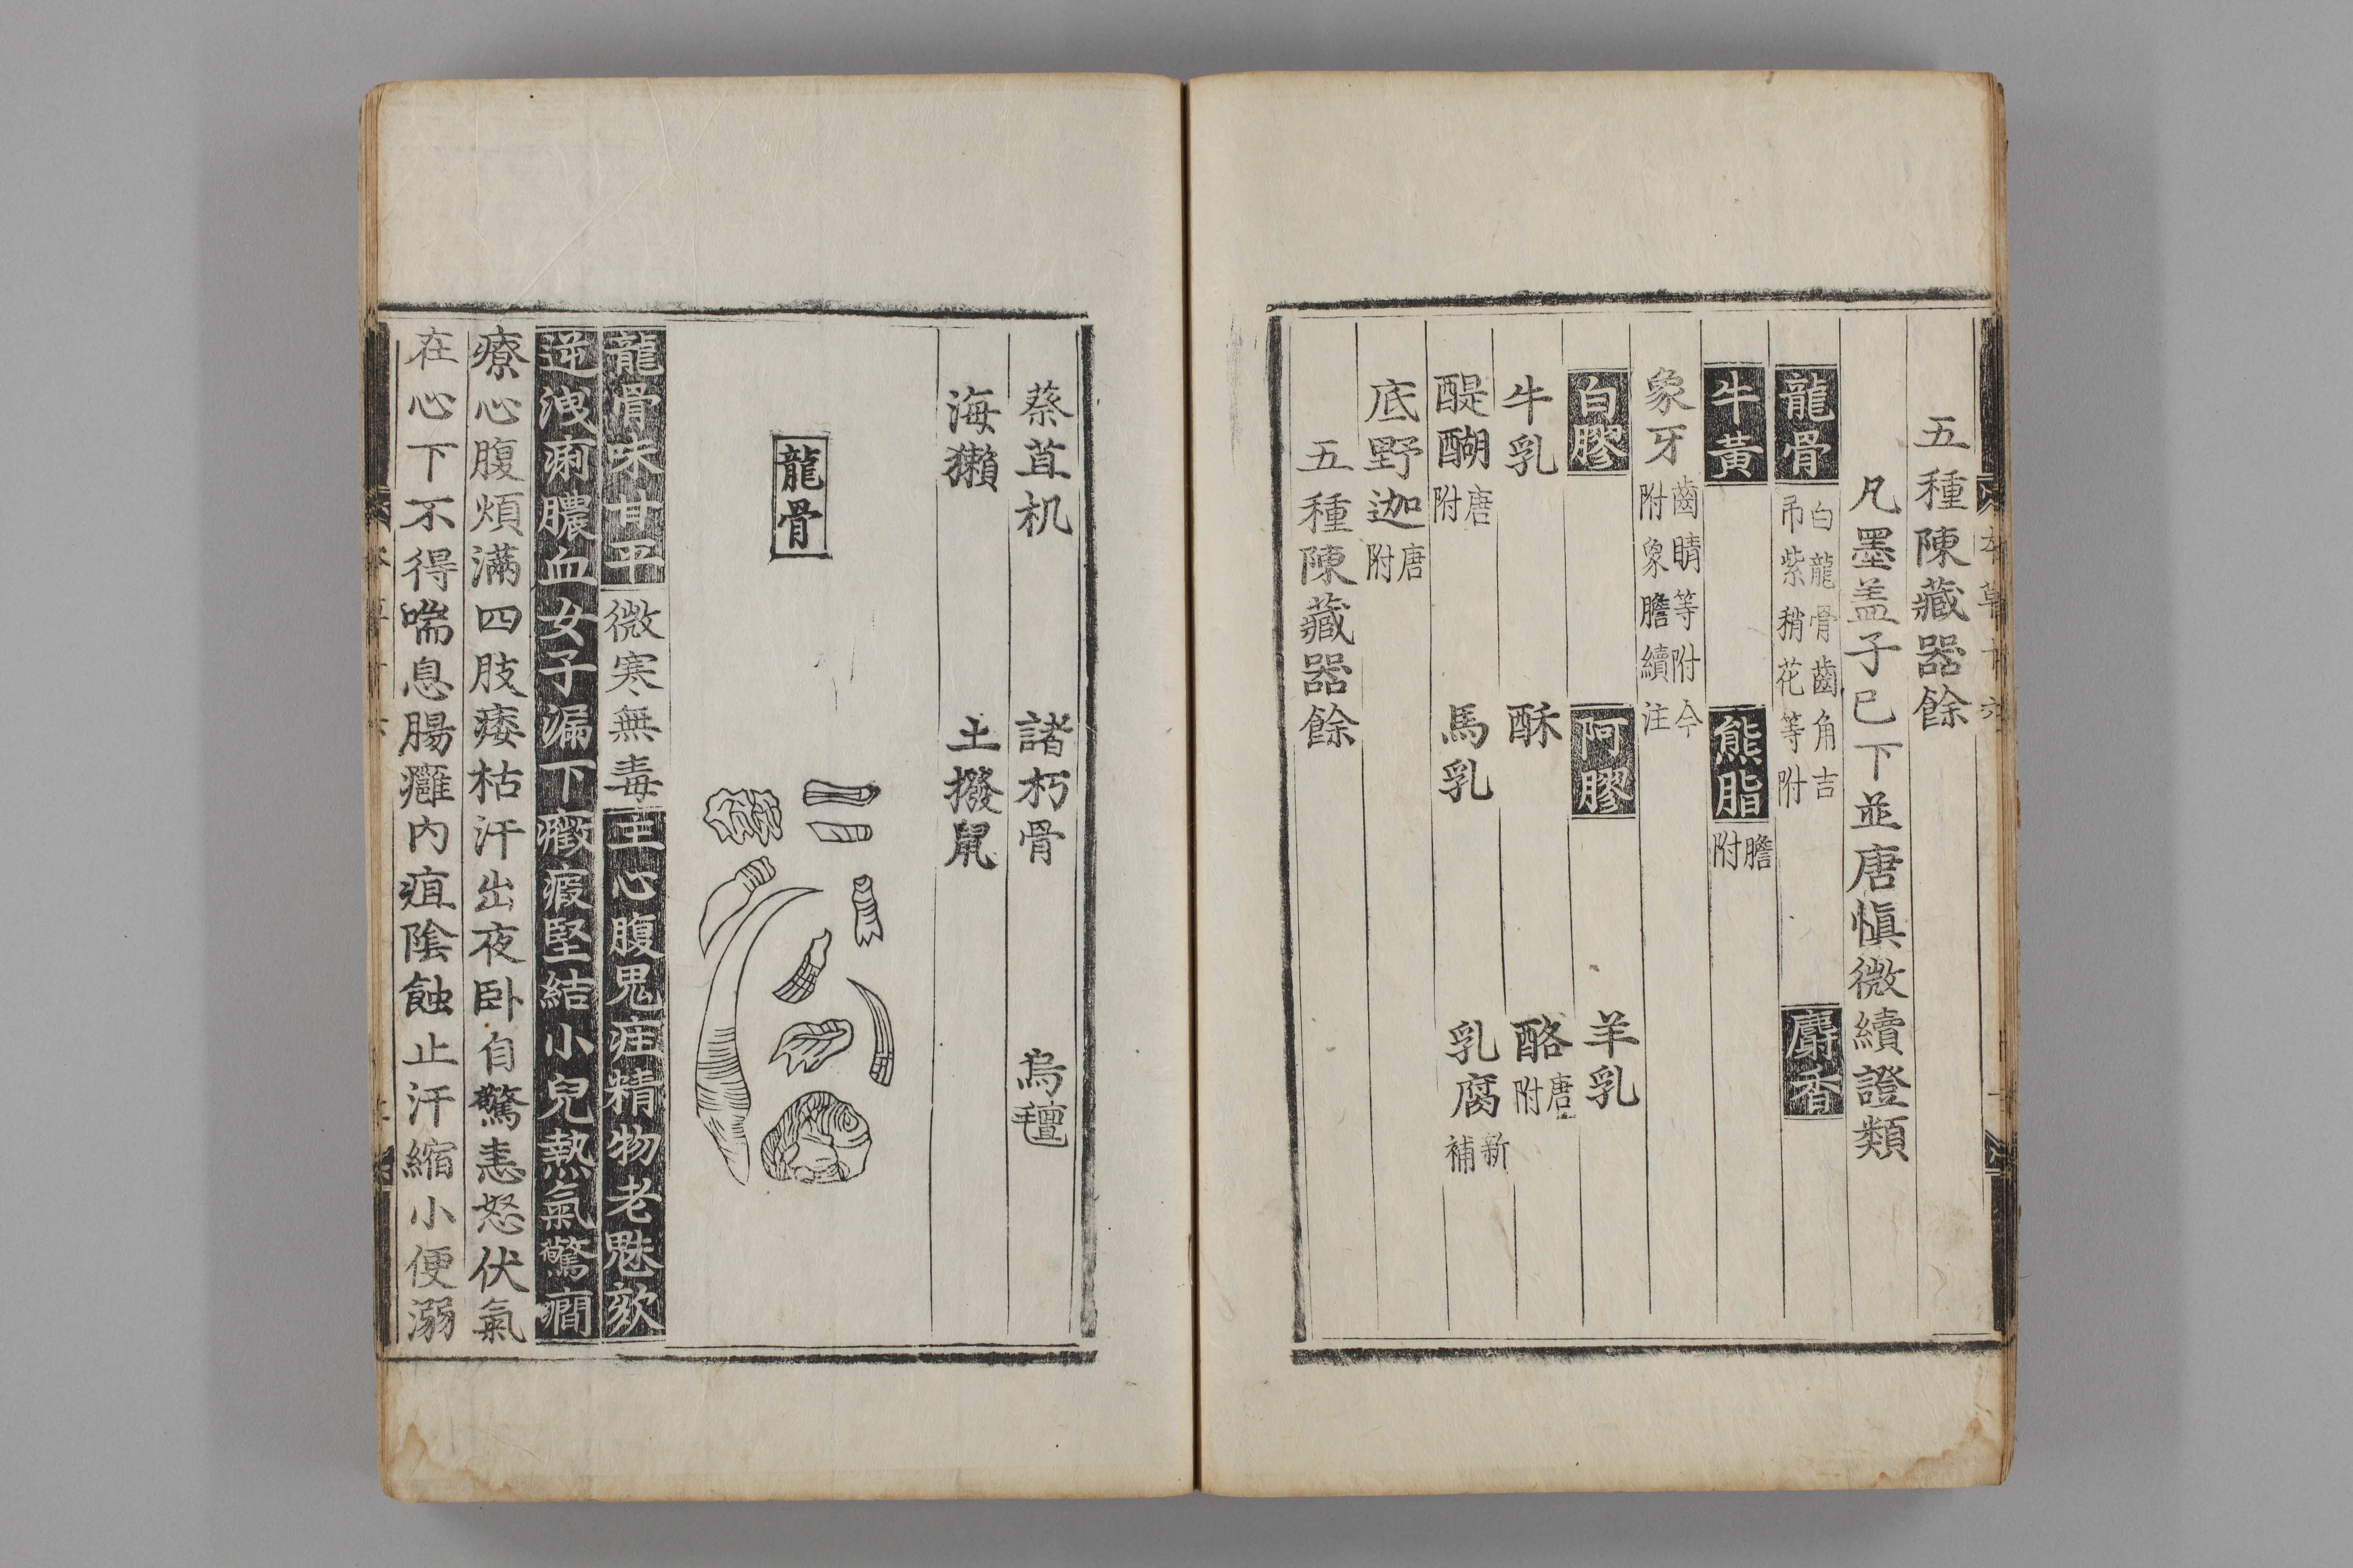 五種陳藏器餘
凡墨盖子巳下並唐愼微續證類
龍骨 白龍骨齒角吉 吊紫稍花等附 麝香
牛黃 熊脂 膽附
象牙 齒睛等附今 附象膽續注
白膠 阿膠 羊乳
牛乳 酥 酪 唐附
醍醐 唐附 馬乳 乳腐 新補
底野迦 唐附
五種陳藏器餘
蔡苴机 諸朽骨 烏氊
海獺 土撥鼠
龍骨
龍骨味甘平微寒無毒主心腹鬼疰精物老魅欬
逆洩痢膿血女子漏下癥瘕堅結小兒熱氣驚癎
療心腹煩滿四肢痿枯汗出夜卧自驚恚怒伏氣
在心下不得喘息腸癰內疽陰蝕止汗縮小便溺